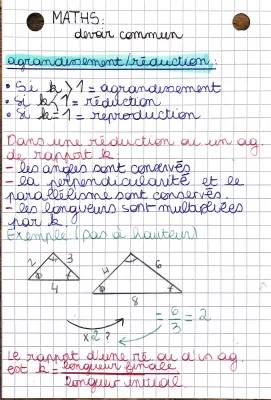 MATHS:
devoir commun
agrandissement/réduction:
• Si k > 1 = agrandissement
• Si k < 1 = réduction
• Si k = 1 = reproduction
Dans une réduction ou un ag.
de rapport k
- les angles sont conservés
- la perpendicularité et le
parallélisme sont conservés.
- les longueurs sont multipliées
par k.
Exemple (pas à hauteur)
2 3
4
4 6
8
x2 ?
= 6/3 = 2
Le rapport d'une ré ou d'un ag.
est k = longueur finale
longueur initial.